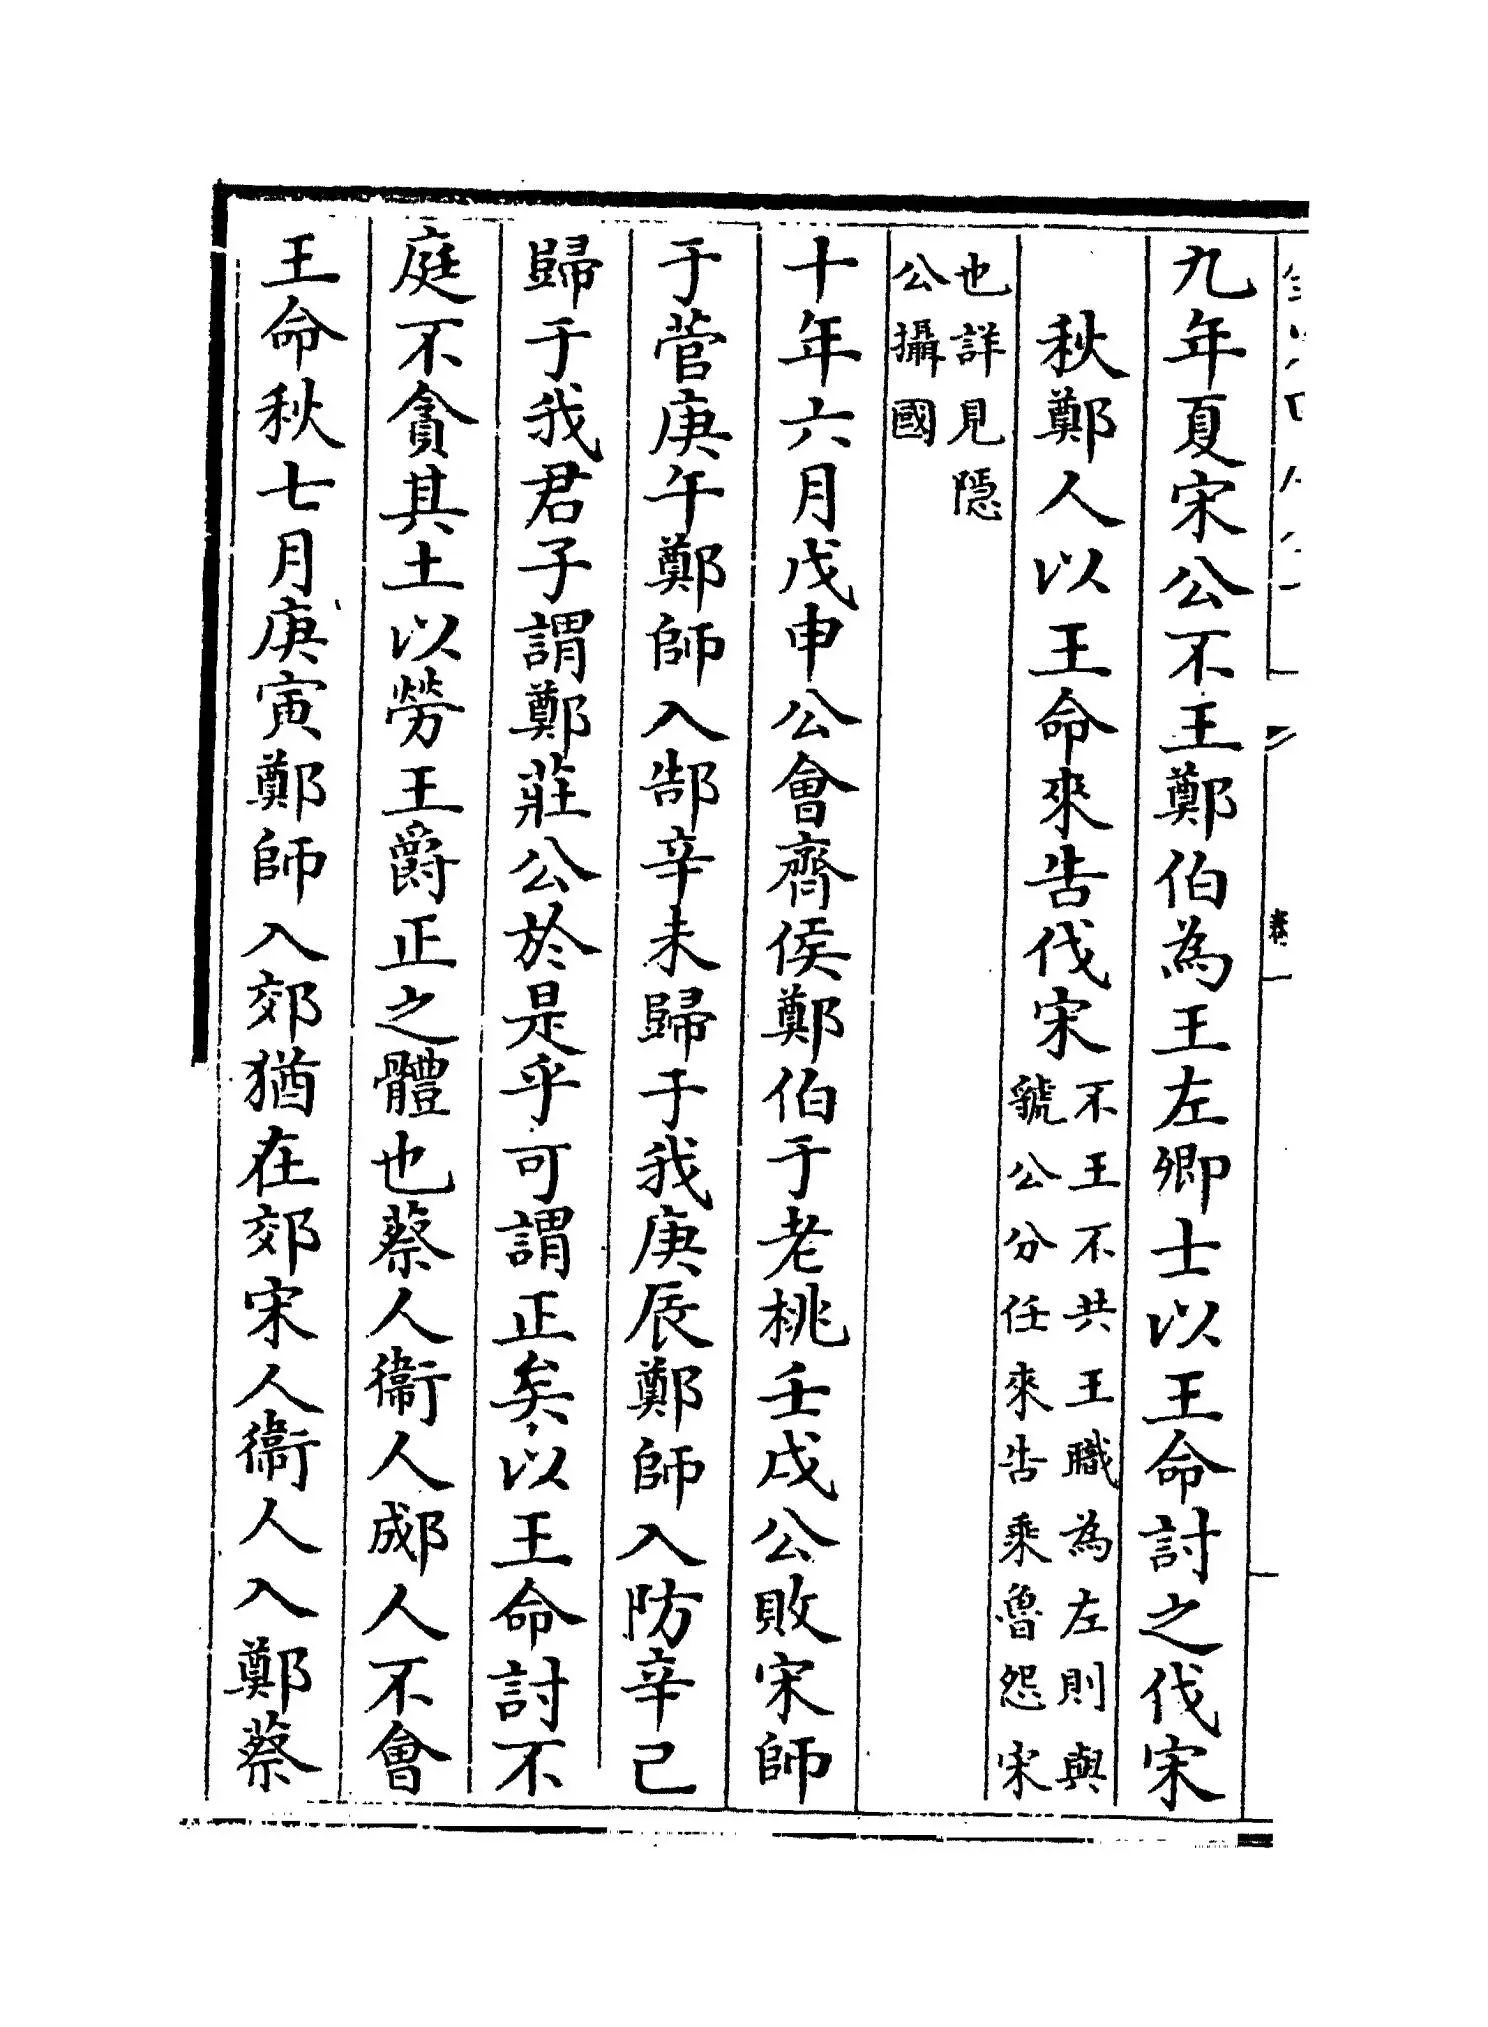 九年夏宋公不王鄭伯為王左卿士以王命討之伐宋
秋鄭人以王命來告伐宋不王不共王職為左則與虢公分任來告乘魯怨宋
也詳見隠公攝國
十年六月戊申公會齊侯鄭伯于老桃壬戌公敗宋師
于菅庚午鄭師入郜辛未歸于我庚辰鄭師入防辛己
歸于我君子謂鄭莊公於是乎可謂正矣以王命討不
庭不貪其土以勞王爵正之體也蔡人衞人郕人不會
王命秋七月庚寅鄭師入郊猶在郊宋人衞人入鄭蔡